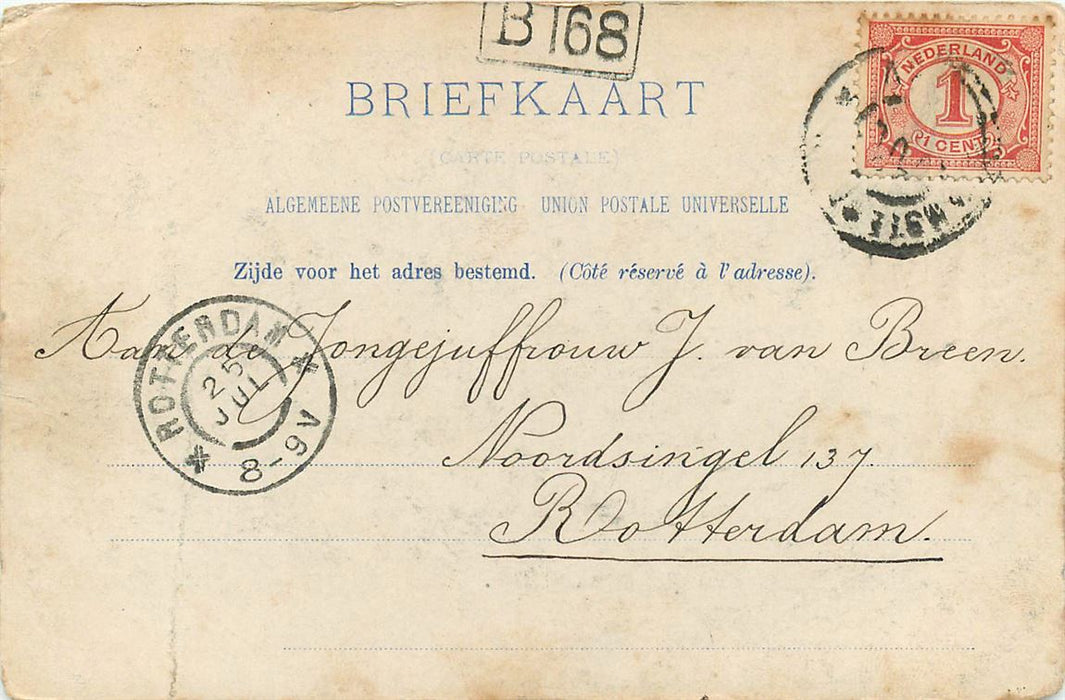 B 168
NEDERLAND
1
1 CENT
BRIEFKAART
(CARTE POSTALE)
ALGEMEENE POSTVEREENIGING UNION POSTALE UNIVERSELLE
Zijde voor het adres bestemd. (Côté réservé à l'adresse).
Aan de Jongejuffrouw J. van Breen.
ROTTERDAM
25
JUL
8-9V
Noordsingel 137.
Rotterdam.